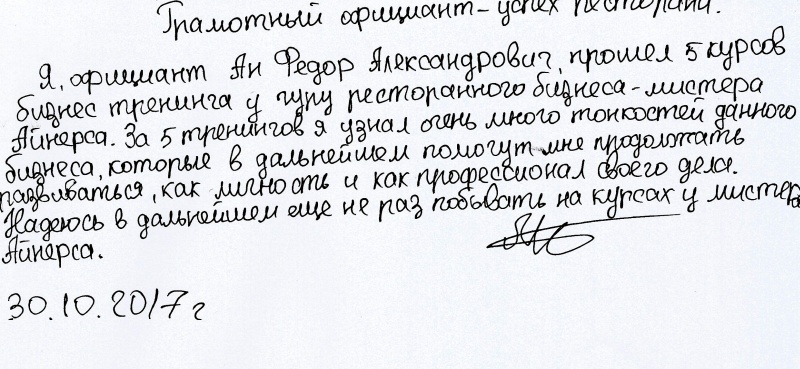 Грамотный официант - успех ресторана.
Я, официант Ан Федор Александрович, прошел 5 курсов
бизнес тренинга у гуру ресторанного бизнеса - мистера
Айнерса. За 5 тренингов я узнал очень много тонкостей данного
бизнеса, которые в дальнейшем помогут мне продолжать
развиваться, как личность и как профессионал своего дела.
Надеюсь в дальнейшем еще не раз побывать на курсах у мистера
Айнерса.
30.10.2017 г